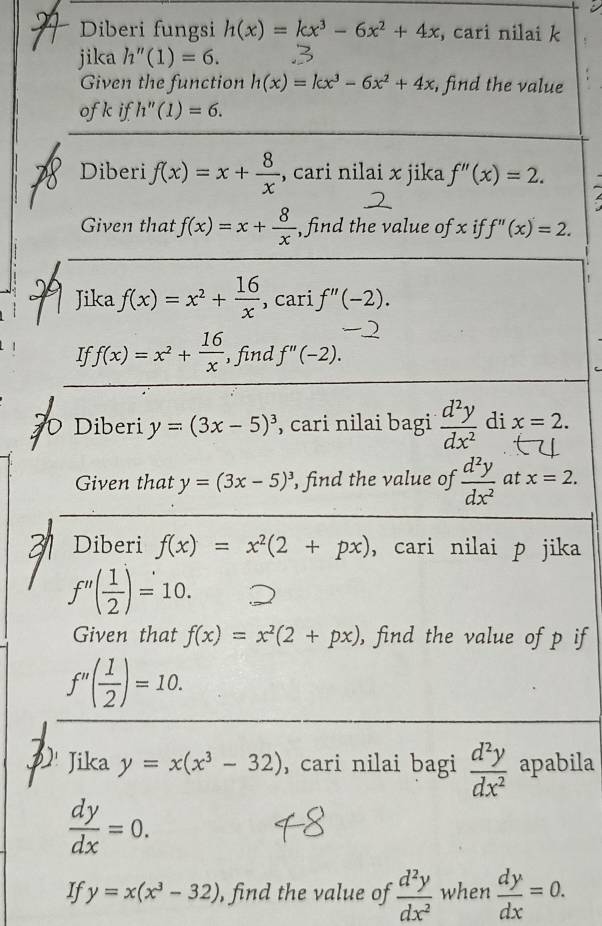 27 Diberi fungsi h(x) = kx³ − 6x² + 4x, cari nilai k
jika h"(1) = 6. 3
Given the function h(x) = kx³ − 6x² + 4x, find the value
of k if h"(1) = 6.
28 Diberi f(x) = x + 8/x, cari nilai x jika f"(x) = 2.
2
Given that f(x) = x + 8/x, find the value of x if f"(x) = 2.
29 Jika f(x) = x² + 16/x, cari f"(−2).
−2
If f(x) = x² + 16/x, find f"(−2).
30 Diberi y = (3x − 5)³, cari nilai bagi d²y/dx² di x = 2.
54
Given that y = (3x − 5)³, find the value of d²y/dx² at x = 2.
31 Diberi f(x) = x²(2 + px), cari nilai p jika
f"(1/2) = 10. 2
Given that f(x) = x²(2 + px), find the value of p if
f"(1/2) = 10.
32 Jika y = x(x³ − 32), cari nilai bagi d²y/dx² apabila
dy/dx = 0. 48
If y = x(x³ − 32), find the value of d²y/dx² when dy/dx = 0.